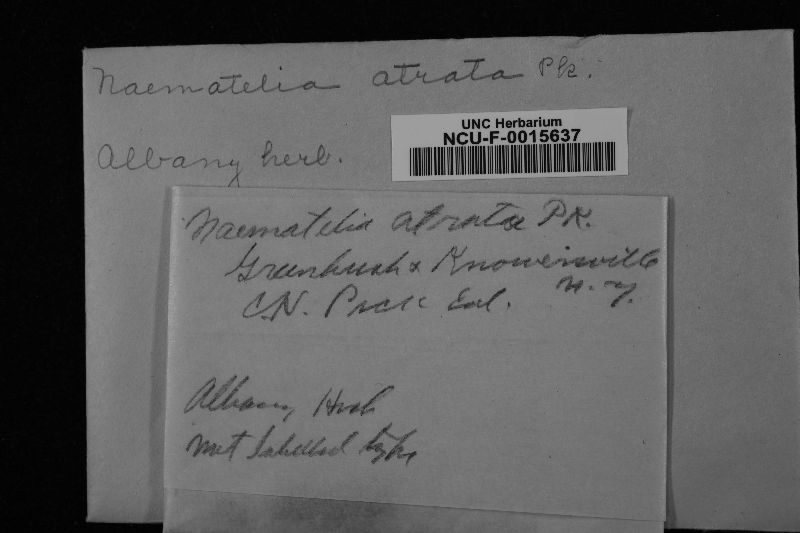 Naematelia atrata Pk.
UNC Herbarium
NCU-F-0015637
Albany herb.
Naematelia atrata Pk.
Greenbush & Knowersville
N. Y.
C.N. Peck Col.
Albany Herb
not labelled type